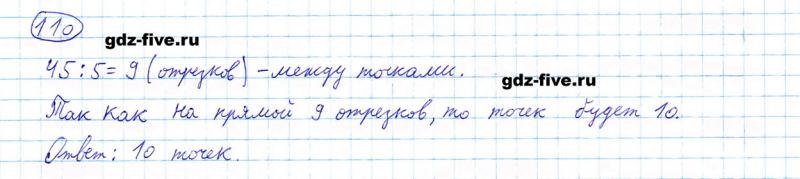 110
gdz-five.ru
45 : 5 = 9 (отрезков) - между точками.
gdz-five.ru
Так как на прямой 9 отрезков, то точек будет 10.
Ответ: 10 точек.